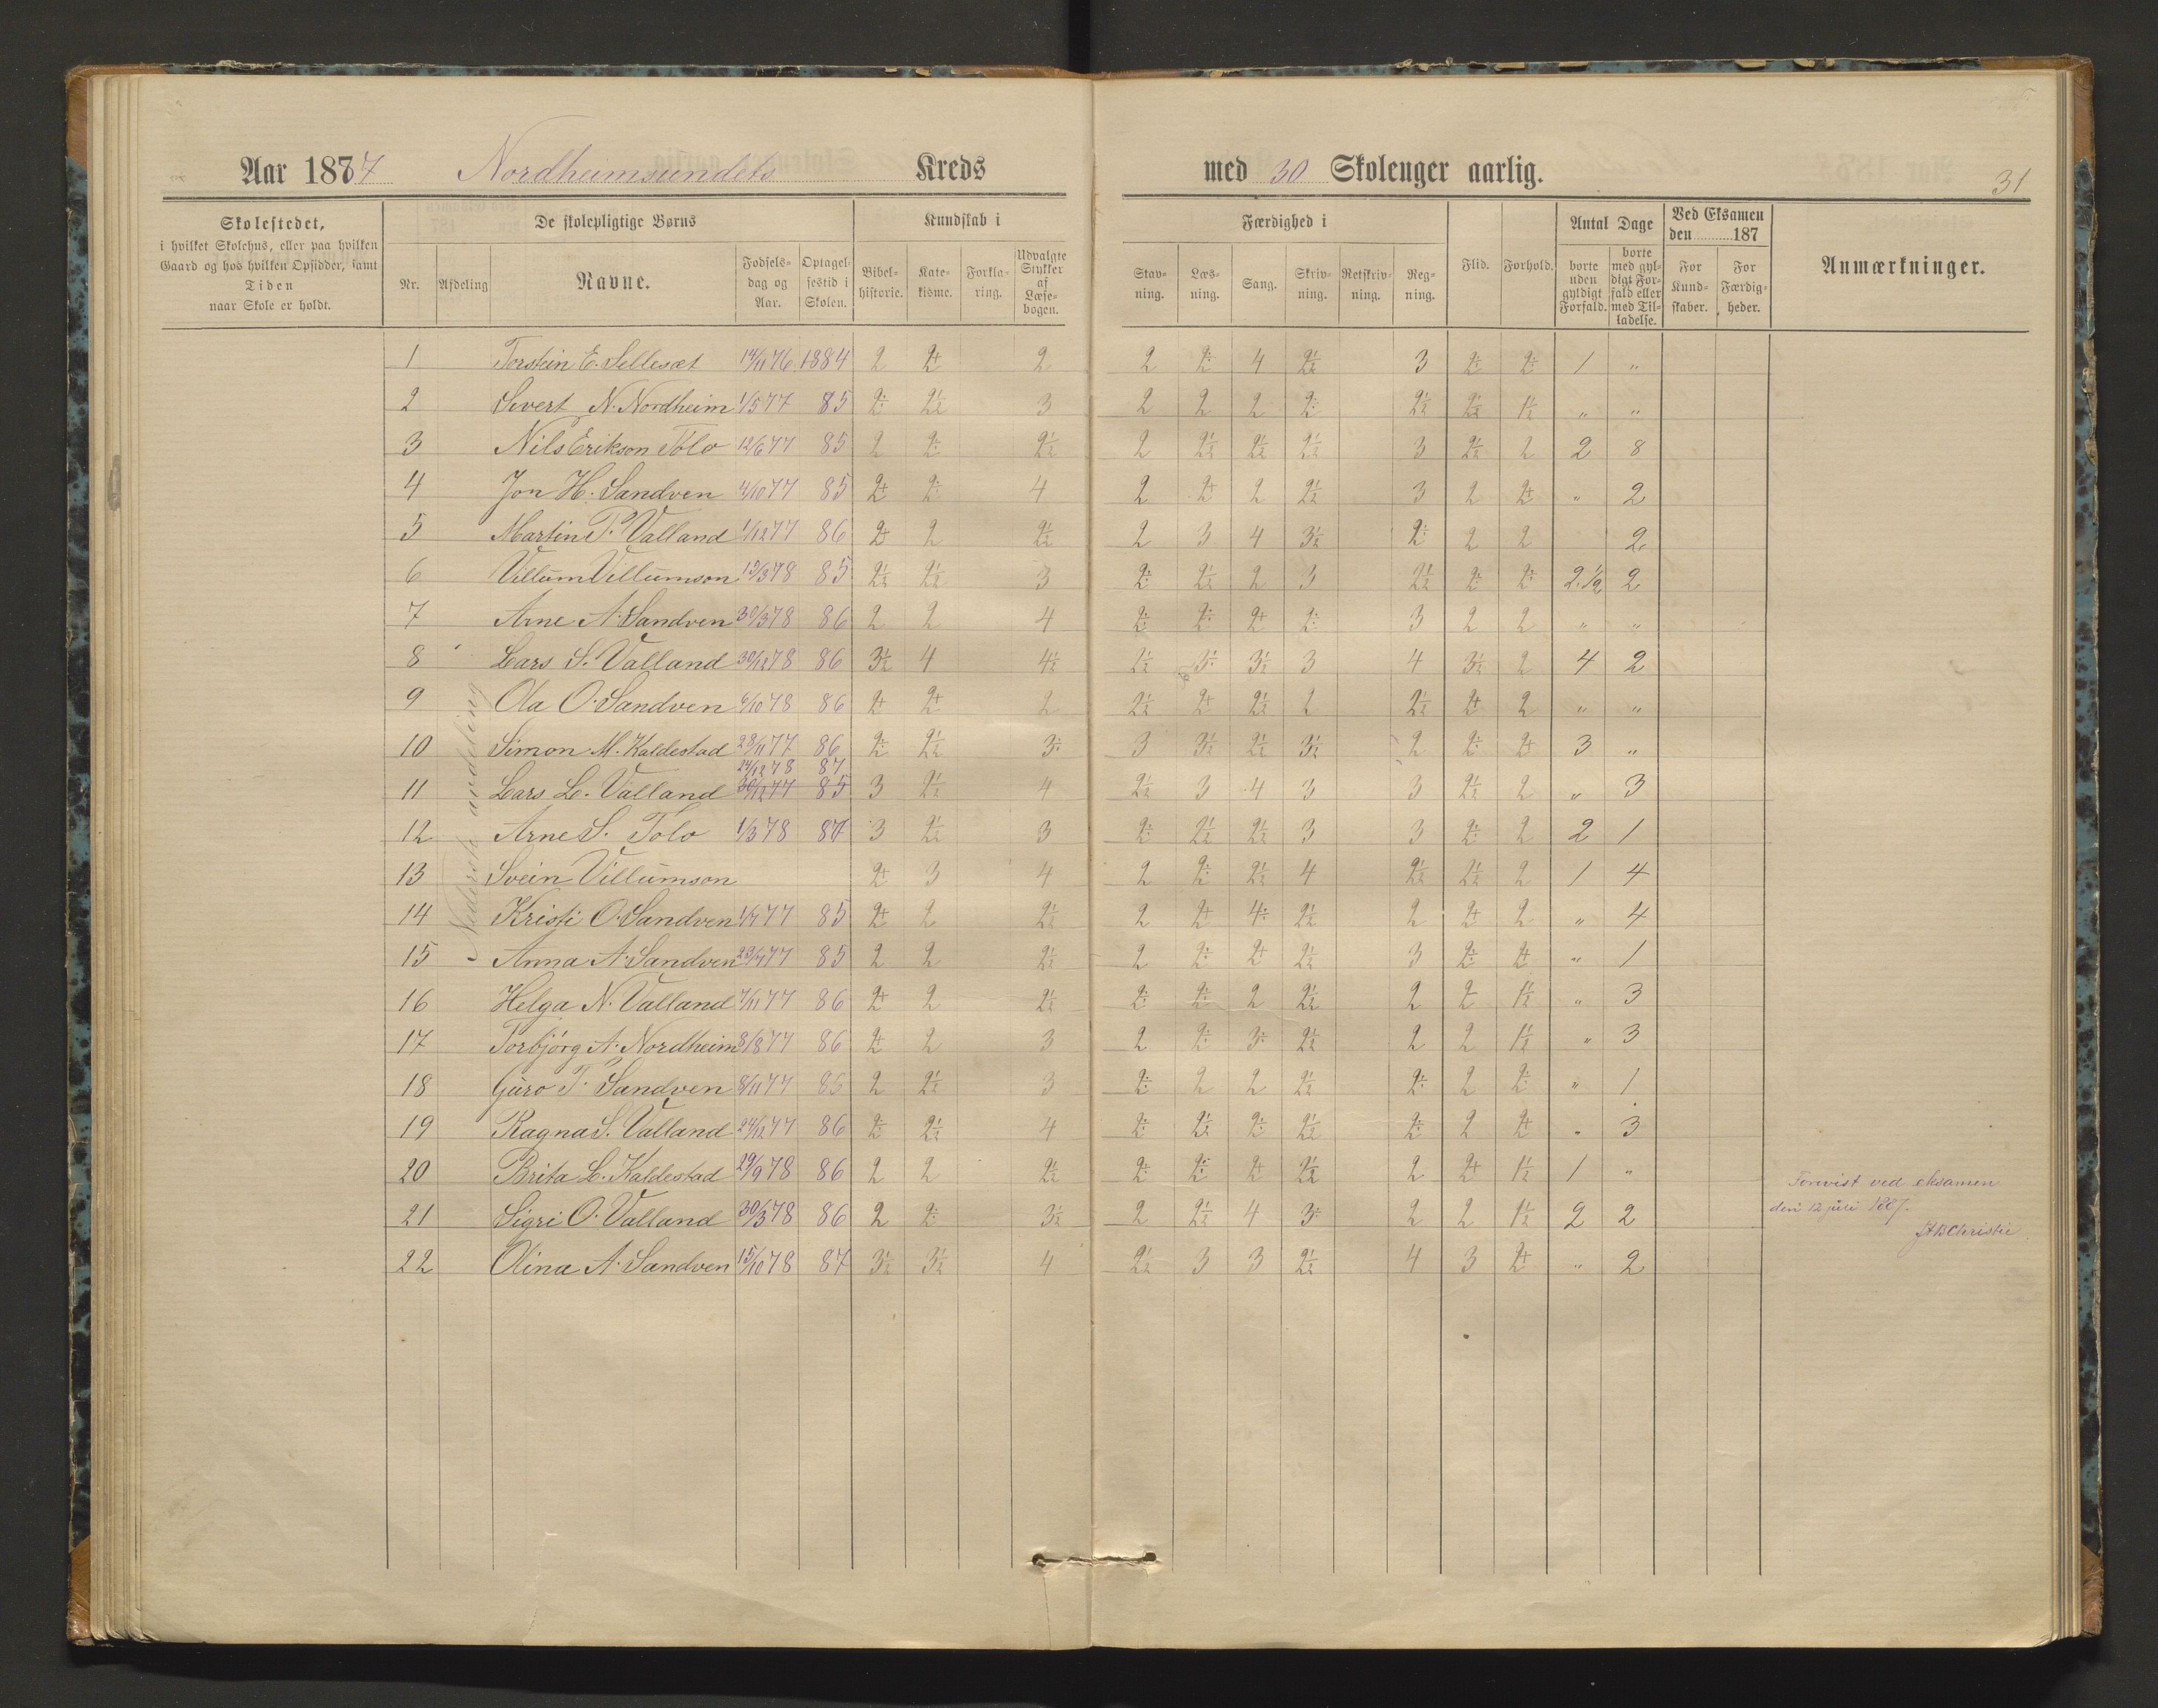 Aar 1887 Nordheimsundets Kreds med 30 Skolenger aarlig.
31
Skolestedet,
i hvilket Skolehus, eller paa hvilken
Gaard og hos hvilken Opsidder, samt
Tiden
naar Skole er holdt.
De skolepligtige Børns
Nr. Afdeling Navne. Fødselsdag og Aar. Optagelsestid i Skolen.
Kundskab i
Bibelhistorie. Katekisme. Forklaring. Udvalgte Stykker af Læsebogen.
Færdighed i
Stavning. Læsning. Sang. Skrivning. Retskrivning. Regning.
Flid. Forhold.
Antal Dage
borte uden gyldigt Forfald. borte med gyldigt Forfald eller med Tilladelse.
Ved Eksamen
den 187
For Kundskaber. For Færdigheder.
Anmærkninger.
Nederste andeling
1 Torstein E. Sellesæt 14/11 76 1884 2 2+ 2 2 2÷ 4 2½ 3 2÷ 2÷ 1 "
2 Sivert N. Nordheim 1/5 77 85 2÷ 2½ 3 2 2 2 2÷ 2½ 2½ 1½ " "
3 Nils Erikson Tolo 12/6 77 85 2 2÷ 2½ 2 2½ 2½ 2½ 3 2½ 2 2 8
4 Jon H. Sandven 4/10 77 85 2+ 2÷ 4 2 2+ 2 2½ 3 2 2+ " 2
5 Martin P. Valland 1/12 77 86 2+ 2 2½ 2 3 4 3½ 2÷ 2 2 2
6 Villum Villumson 19/3 78 85 2½ 2½ 3 2÷ 2½ 2 3 2½ 2÷ 2÷ 2 1/2 2
7 Arne A. Sandven 30/3 78 86 2 2 4 2÷ 2÷ 2+ 2÷ 3 2 2 " "
8 Lars S. Valland 30/12 78 86 3½ 4 4½ 2½ 3÷ 3½ 3 4 3½ 2 4 2
9 Ola O. Sandven 6/10 78 86 2+ 2+ 2 2½ 2+ 2½ 2 2½ 2+ 2 " "
10 Simon M. Kaldestad 28/11 77 86 2÷ 2½ 3÷ 3 3½ 2½ 3½ 2 2÷ 2+ 3 "
24/12 78 87
11 Lars L. Valland 30/12 77 85 3 2½ 4 2½ 3 4 3 3 2½ 2 " 3
12 Arne S. Tolo 1/3 78 87 3 2½ 3 2÷ 2½ 2½ 3 3 2÷ 2 2 1
13 Svein Villumson 2+ 3 4 2 2÷ 2½ 4 2½ 2½ 2 1 4
14 Kristi O. Sandven 1/7 77 85 2+ 2 2½ 2 2+ 4÷ 2½ 2 2+ 2 " 4
15 Anna A. Sandven 29/7 77 85 2 2 2½ 2 2÷ 2+ 2½ 3 2÷ 2+ " 1
16 Helga N. Valland 7/11 77 86 2+ 2 2½ 2÷ 2÷ 2 2½ 2 2 1½ " 3
17 Torbjørg A. Nordheim 8/8 77 86 2+ 2 3 2 2÷ 3÷ 2½ 2 2 1½ " 3
18 Guro T. Sandven 8/11 77 86 2 2½ 3 2÷ 2 2 2½ 2÷ 2 2÷ " 1
19 Ragna S. Valland 24/12 77 86 2÷ 2½ 4 2÷ 2½ 2÷ 2½ 2÷ 2 2+ " 3
20 Brita L. Kaldestad 29/9 78 86 2 2 2½ 2÷ 2÷ 2+ 2½ 2 2+ 1½ 1 "
21 Sigri O. Valland 30/3 78 86 2 2÷ 3½ 2 2½ 4 3÷ 2 2 1½ 2 2
22 Olina A. Sandven 15/10 78 87 3½ 3½ 4 2½ 3 3 2½ 4 3 2+ " 2
Forevist ved eksamen
den 12 juli 1887.
Christie